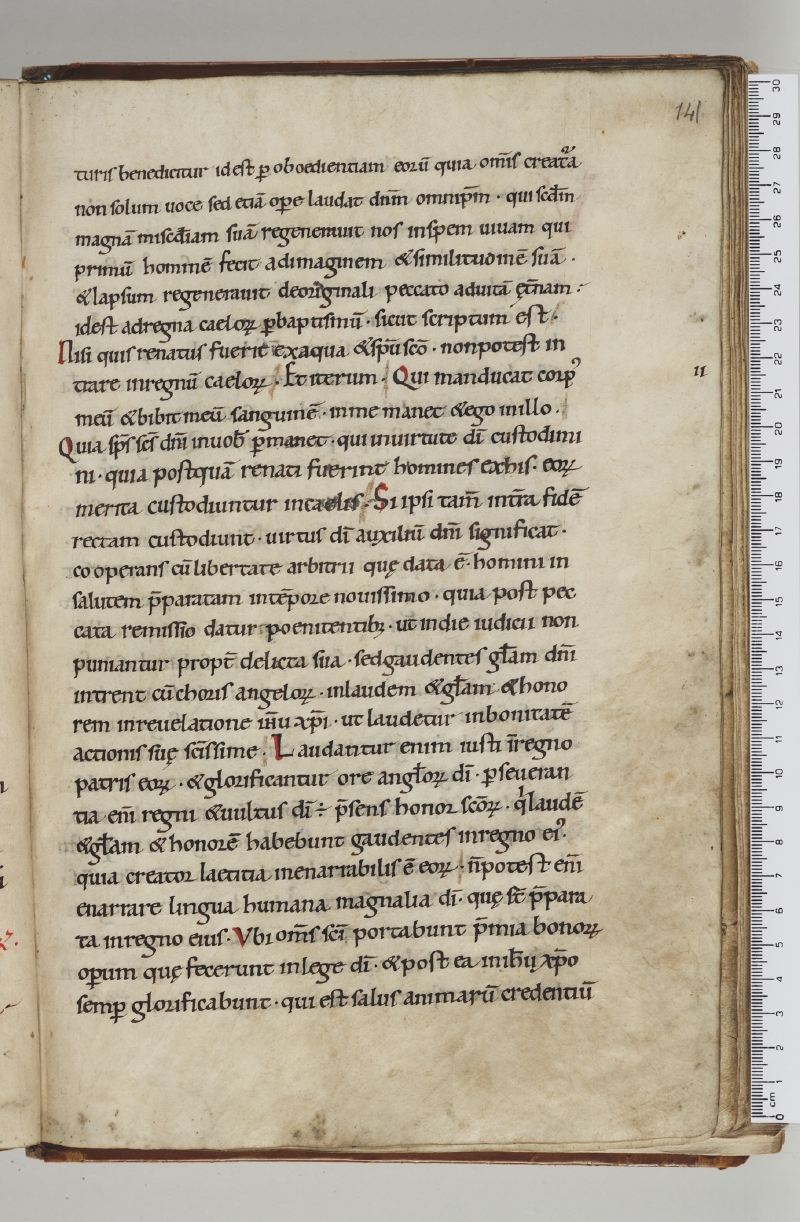 141
turis benedicitur id est ꝑ oboedientiam eorū quia om̄s creatᷓa
non solum uoce sed etiā oꝑe laudat dn̄m omnip̄m · qui scd̄m
magnā misc̄diam suā regenerauit nos inspem uiuam qui
primū hominē fecit adimaginem &similitudinē suā ·
&lapsum regenerauit deoriginali peccato aduitā ęt̄nam :
idest adregna caeloꝝ ꝑbaptismū · sicut scriptum est ·
Nisi quis renatus fuerit exaqua &sp̄u sc̄o · nonpotest in
trare inregnū caeloꝝ · Et iterum · Qui manducat corpꝰ
ii
meū &bibit meū sanguinē · inme manet &ego inillo ·
Quia sp̄s sc̄s dn̄i inuob̄ ꝑmanet · qui inuirtute dī custodimi
ni · quia postquā renati fuerint homines exhis · eoꝝ
merita custodiuntur incaelis · Si ipsi tam̄ intr̄a fidē
rectam custodiunt · uirtus dī auxiliū dn̄i significat ·
co operans cū libertate arbitrii quę data ē · homini in
salutem p̄paratam intēpore nouissimo · quia post pec
cata remissio datur poenitentibꝫ · ut indie iudicii non
puniantur propt̄ delicta sua · sedgaudentes gl̄am dn̄i
intrent cū choris angeloꝝ · inlaudem &gl̄am &hono
rem inreuelatione ih̄u xp̄i · ut laudetur inbonitatē
actionis suę sc̄issime · Laudantur enim iusti īregno
patris eoꝝ · &glorificantur ore angl̄oꝝ dī · ꝑseueran
tia em̄ regni &uultus dī ÷ p̄sens honor sc̄oꝝ · qͥ laudē
&gl̄am &honorē habebunt gaudentes inregno eiꝰ ·
quia creator laetitia inenarrabilis ē eoꝝ · n̄potest em̄
enarrare lingua humana magnalia dī · quę st̄ p̄para
ta inregno eius · Vbi om̄s sc̄i portabunt p̄mia bonoꝝ
oꝑum quę fecerunt inlege dī · &post ea inih̄u xp̄o
semꝑ glorificabunt · qui est salus animarū credentiū